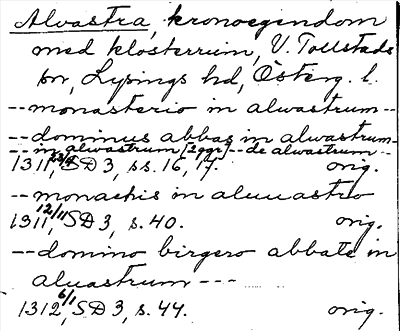 Alvastra, kronoegendom
med klosterruin, V. Tollstads
sn, Lysings hd, Österg. l.
-- monasterio in alwastrum --
-- dominus abbas in alwastrum --
-- in alwastrum [2 ggr] -- de alwastrum --
1311 23/4, SD 3, ss. 16, 17. orig.
-- monachis in aluuastro
1311 12/11, SD 3, s. 40. orig.
-- domino birgero abbate in
aluastrum ---
1312 6/1, SD 3, s. 44. orig.